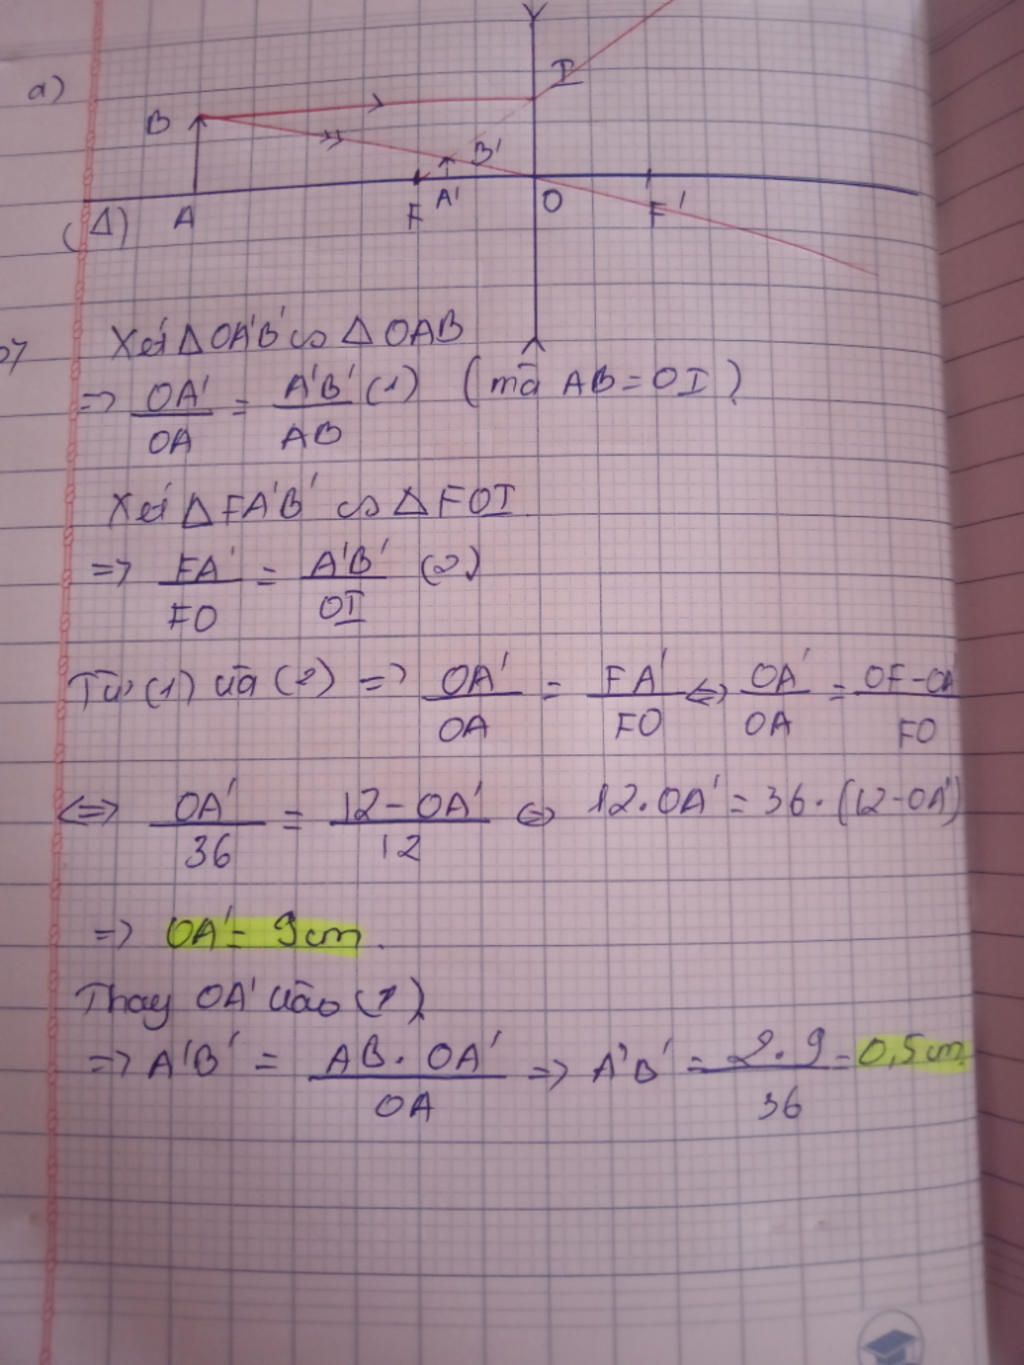 a)
I
B
B'
(Δ) A F A' O F'
b) Xét Δ OA'B' ∽ Δ OAB
=> OA'/OA = A'B'/AB (1) (mà AB = OI)
Xét Δ FA'B' ∽ Δ FOI
=> FA'/FO = A'B'/OI (2)
Từ (1) và (2) => OA'/OA = FA'/FO <=> OA'/OA = OF-OA'/FO
<=> OA'/36 = 12-OA'/12 <=> 12.OA' = 36.(12-OA')
=> OA' = 9cm.
Thay OA' vào (1)
=> A'B' = AB.OA'/OA => A'B' = 2.9/36 = 0,5cm